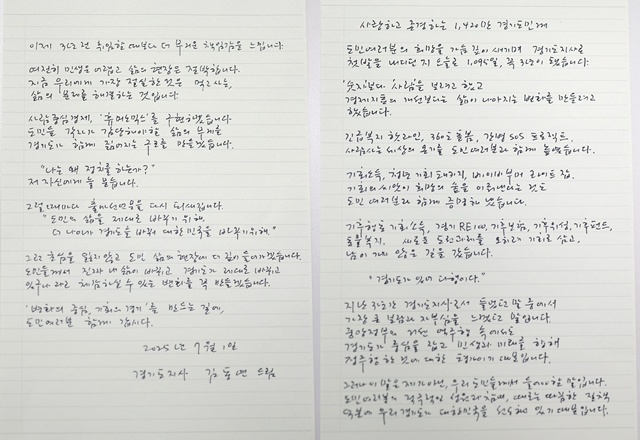 이제 3년 전 취임할 때보다 더 무거운 책임감을 느낍니다.
여전히 민생은 어렵고 삶의 현장은 절박합니다.
지금 우리에게 가장 절실한 것은 먹고사는,
삶의 문제를 해결하는 것입니다.
사람중심경제, '휴머노믹스'를 구현하겠습니다.
도민들 각자가 감당해야 할 삶의 무게를
경기도가 함께 짊어지는 구조를 만들겠습니다.
"나는 왜 정치를 하는가?"
저 자신에게 늘 묻습니다.
그럴 때마다 출마선언문을 다시 되새깁니다.
"도민의 삶을 제대로 바꾸기 위해,
더 나아가 경기도를 바꿔 대한민국을 바꾸기 위해."
그 초심을 잃지 않고 도민 삶의 현장에 더 깊이 들어가겠습니다.
도민들께서 진짜 내 삶이 바뀌고 경기도가 제대로 바뀌고
있구나 라고 체감하실 수 있는 변화를 꼭 만들겠습니다.
'변화의 중심, 기회의 경기'를 만드는 길에,
도민여러분 함께 갑시다.
2025년 7월 1일
경기도지사 김동연 드림
사랑하고 존경하는 1,420만 경기도민께
도민여러분의 희망을 가슴 깊이 새기며 경기도지사로
첫발을 내디딘 지 오늘로 1,095일, 꼭 3년이 됐습니다.
'숫자'보다 '사람'을 보려고 했고
경제지표의 개선보다는 삶이 나아지는 변화를 만들려고
했습니다.
긴급복지 핫라인, 360도 돌봄, 간병 SOS 프로젝트.
사람사는 세상의 온기를 도민여러분과 함께 높였습니다.
기회소득, 청년 기회패키지, 베이비부머 라이트잡.
기회의 씨앗이 희망의 숲을 이뤄낸다는 것도
도민 여러분과 함께 증명해 냈습니다.
기후행동 기회소득, 경기 RE100, 기후보험, 기후위성, 기후펀드,
동물복지. 새로운 도전과제를 오히려 기회로 삼고,
남이 가지 않은 길을 갔습니다.
"경기도가 있어 다행이다."
지난 3년간 경기도지사로서 들었던 말 중에서
가장 큰 보람과 자부심을 느꼈던 말입니다.
중앙정부의 거센 역주행 속에서도
경기도가 중심을 잡고 민생과 미래를 향해
정주행 한 것에 대한 평가이기 때문입니다.
그러나 이 말은 제가 아닌, 우리 도민들께서 들어야 할 말입니다.
도민여러분의 전폭적인 성원과 참여, 때로는 따끔한 질책
덕분에 우리 경기도가 대한민국을 선도하고 있기 때문입니다.